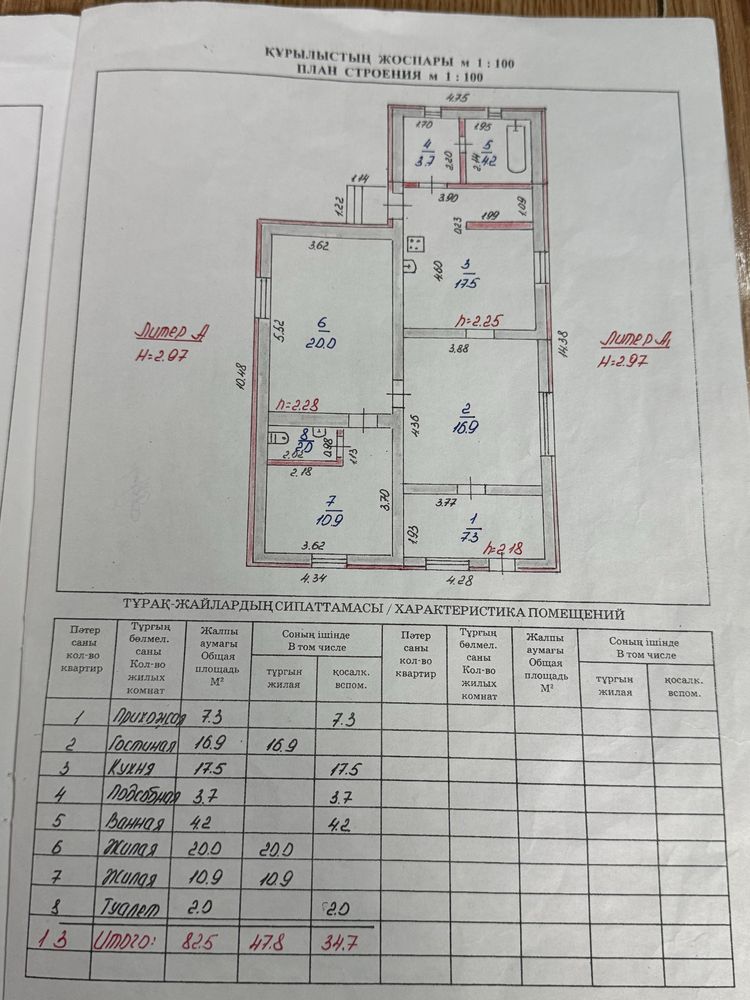 ҚҰРЫЛЫСТЫҢ ЖОСПАРЫ м 1 : 100
ПЛАН СТРОЕНИЯ м 1 : 100
4.75
1.70
1.95
4
3.7
2.20
2.14
5
4.2
1.14
1.22
3.90
1.99
1.09
0.23
3.62
4.60
3
17.5
h=2.25
Литер А
H=2.97
5.52
6
20.0
10.48
h=2.28
3.88
14.38
Литер А1
H=2.97
2
16.9
4.36
8
2.0
2.02
0.98
1.13
2.18
7
10.9
3.70
3.62
3.77
1
7.3
1.93
h=2.18
4.34
4.28
ТҰРАҚ-ЖАЙЛАРДЫҢ СИПАТТАМАСЫ / ХАРАКТЕРИСТИКА ПОМЕЩЕНИЙ
Пәтер саны кол-во квартир
Тұрғын бөлмел. саны Кол-во жилых комнат
Жалпы аумағы Общая площадь М²
Соның ішінде В том числе
тұрғын жилая
қосалк. вспом.
Пәтер саны кол-во квартир
Тұрғын бөлмел. саны Кол-во жилых комнат
Жалпы аумағы Общая площадь М²
Соның ішінде В том числе
тұрғын жилая
қосалк. вспом.
1 Прихожая 7.3 7.3
2 Гостиная 16.9 16.9
3 Кухня 17.5 17.5
4 Подсобная 3.7 3.7
5 Ванная 4.2 4.2
6 Жилая 20.0 20.0
7 Жилая 10.9 10.9
8 Туалет 2.0 2.0
1 3 Итого: 82.5 47.8 34.7